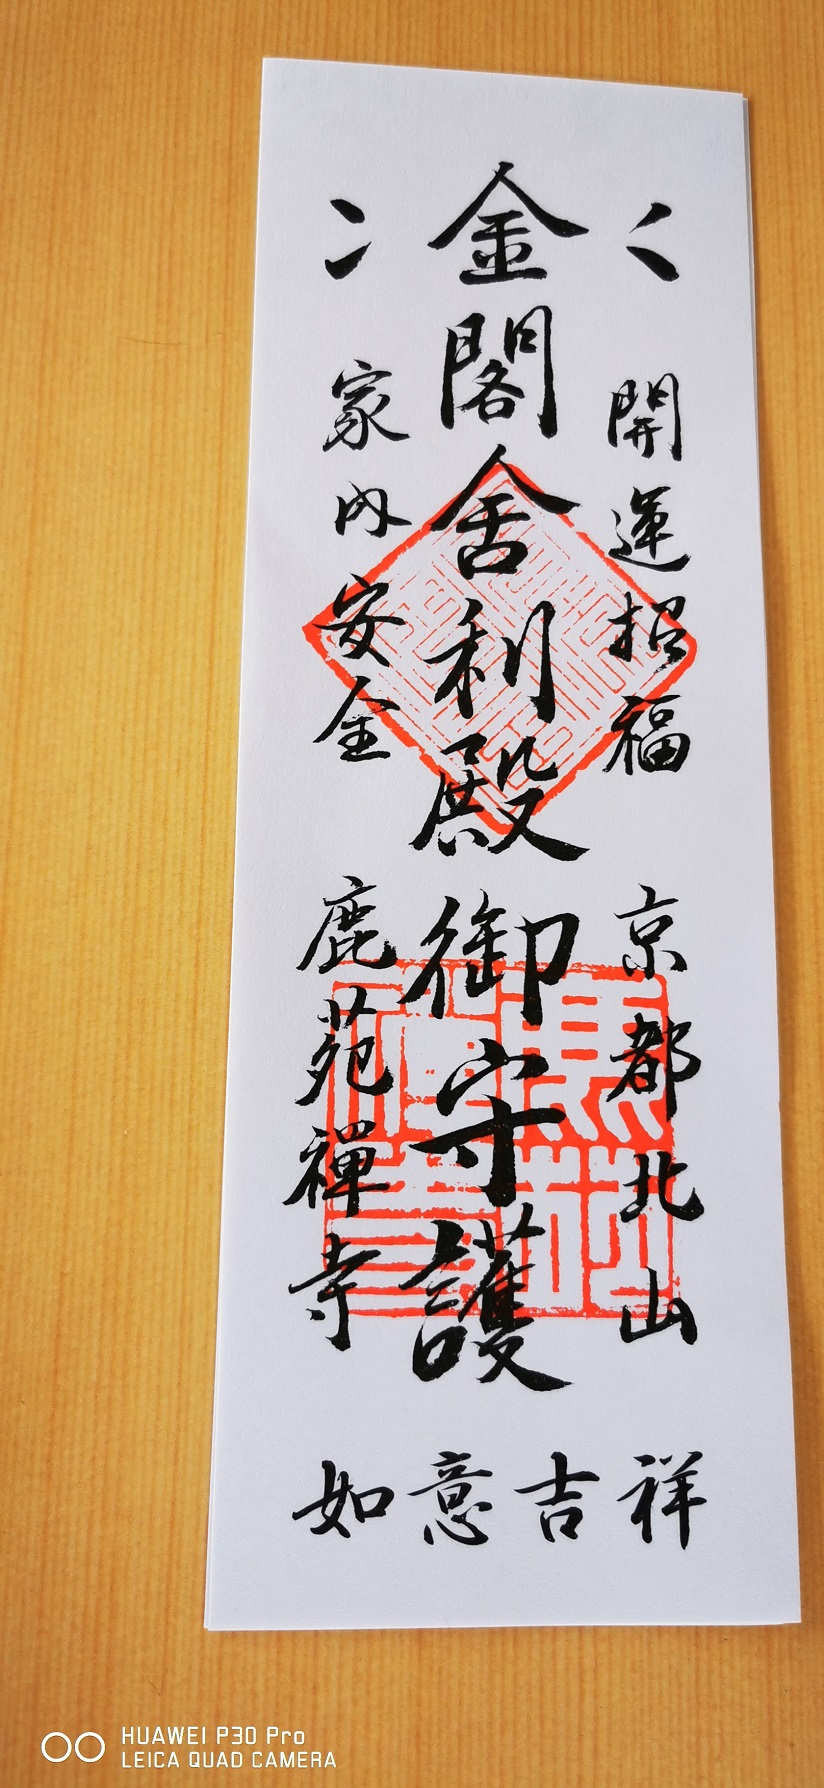 開運招福 京都北山
金閣舎利殿御守護
家内安全 鹿苑禅寺
如意吉祥
HUAWEI P30 Pro
LEICA QUAD CAMERA